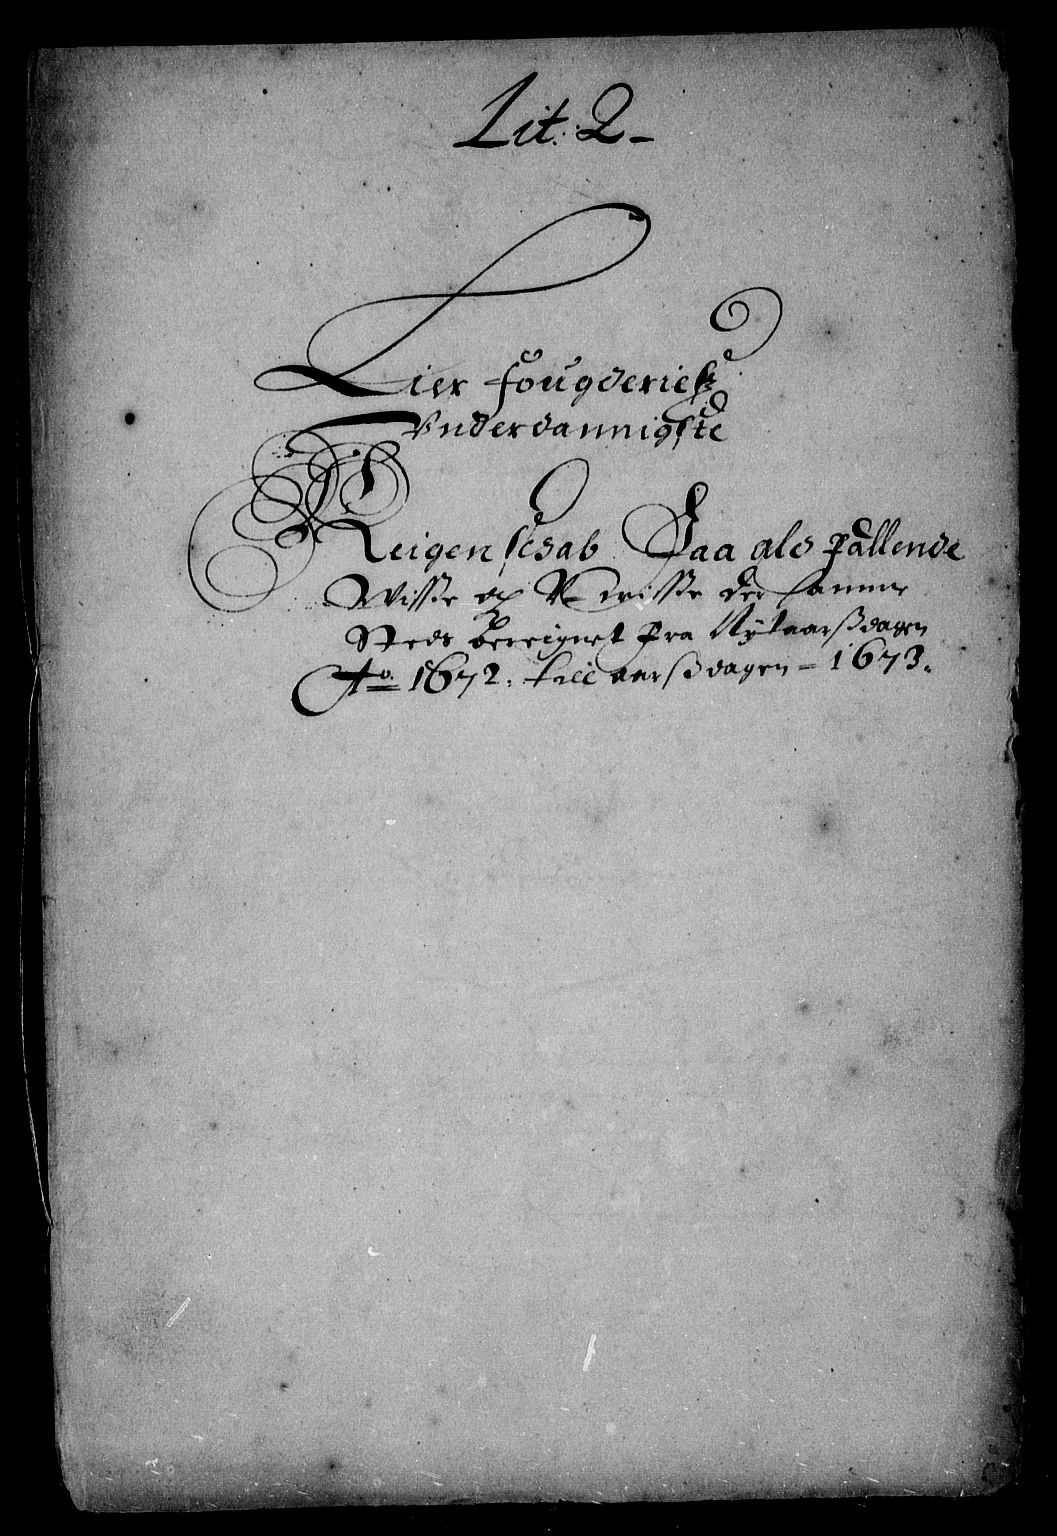 Lit: 2
Lier fougderiets
Vnderdannigste
Reigenscsab Paa als fallende
Wisse oc V-wisse der samme
Steds bereignet fra Nÿtaarsdagen
Ao 1672. till aarsdagen - 1673.